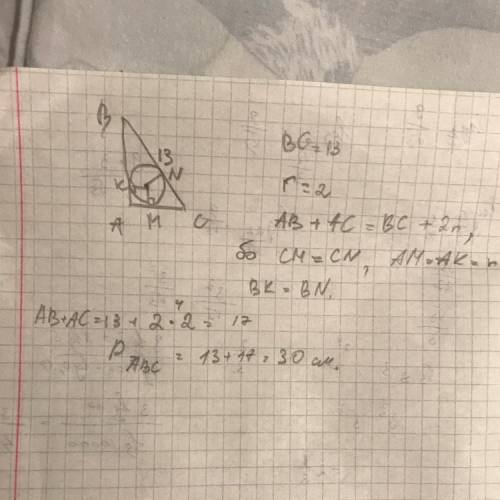 B
13
N
K
A M C
BC = 13
r = 2
AB + AC = BC + 2r,
бо CM = CN, AM = AK = r
BK = BN.
AB + AC = 13 + 2 · 2 = 17
4
P ABC = 13 + 17 = 30 см.